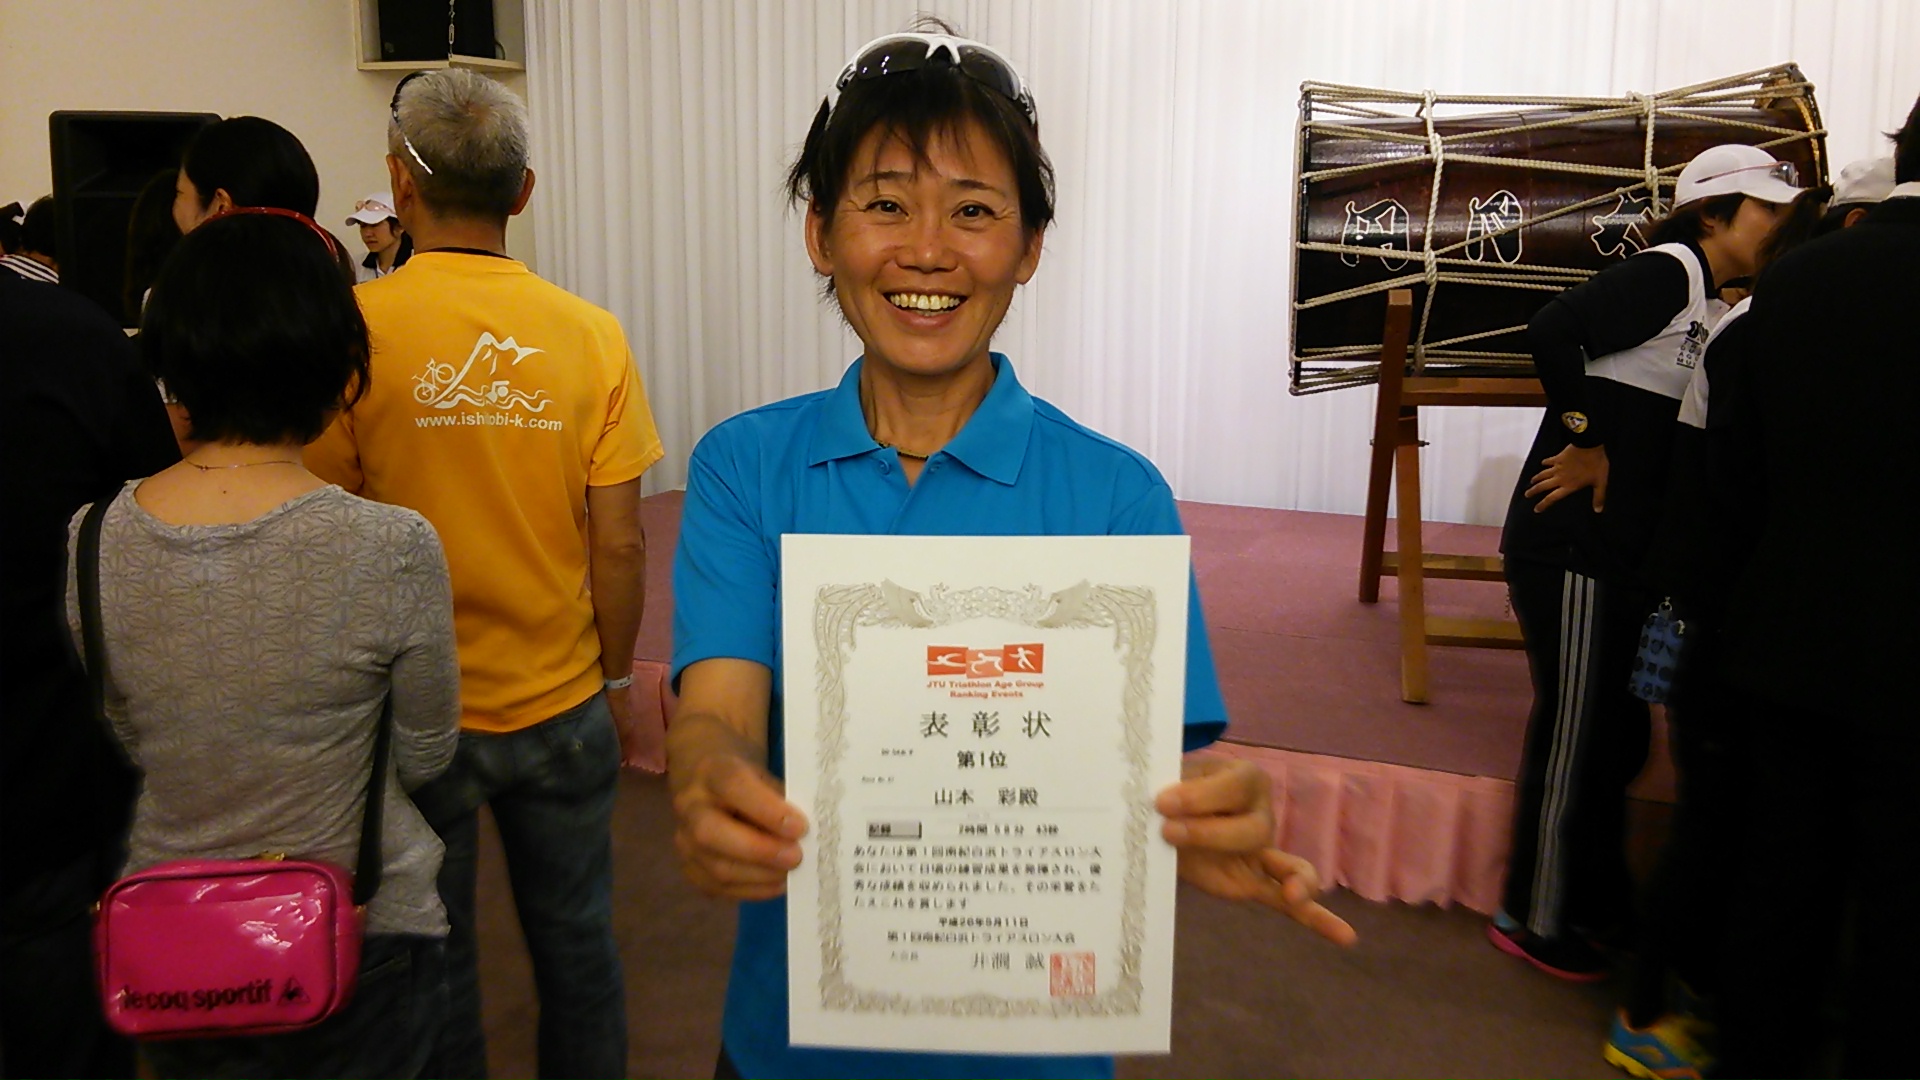 www.ishitobi-k.com
le coq sportif
JTU Triathlon Age Group
Ranking Events
表彰状
第1位
山本 彩殿
記録 2時間 58分 43秒
あなたは第1回南紀白浜トライアスロン大
会において日頃の練習成果を発揮され、優
秀な成績を収められました、その栄誉をた
たえこれを賞します
平成26年5月11日
第1回南紀白浜トライアスロン大会
大会長 井澗 誠